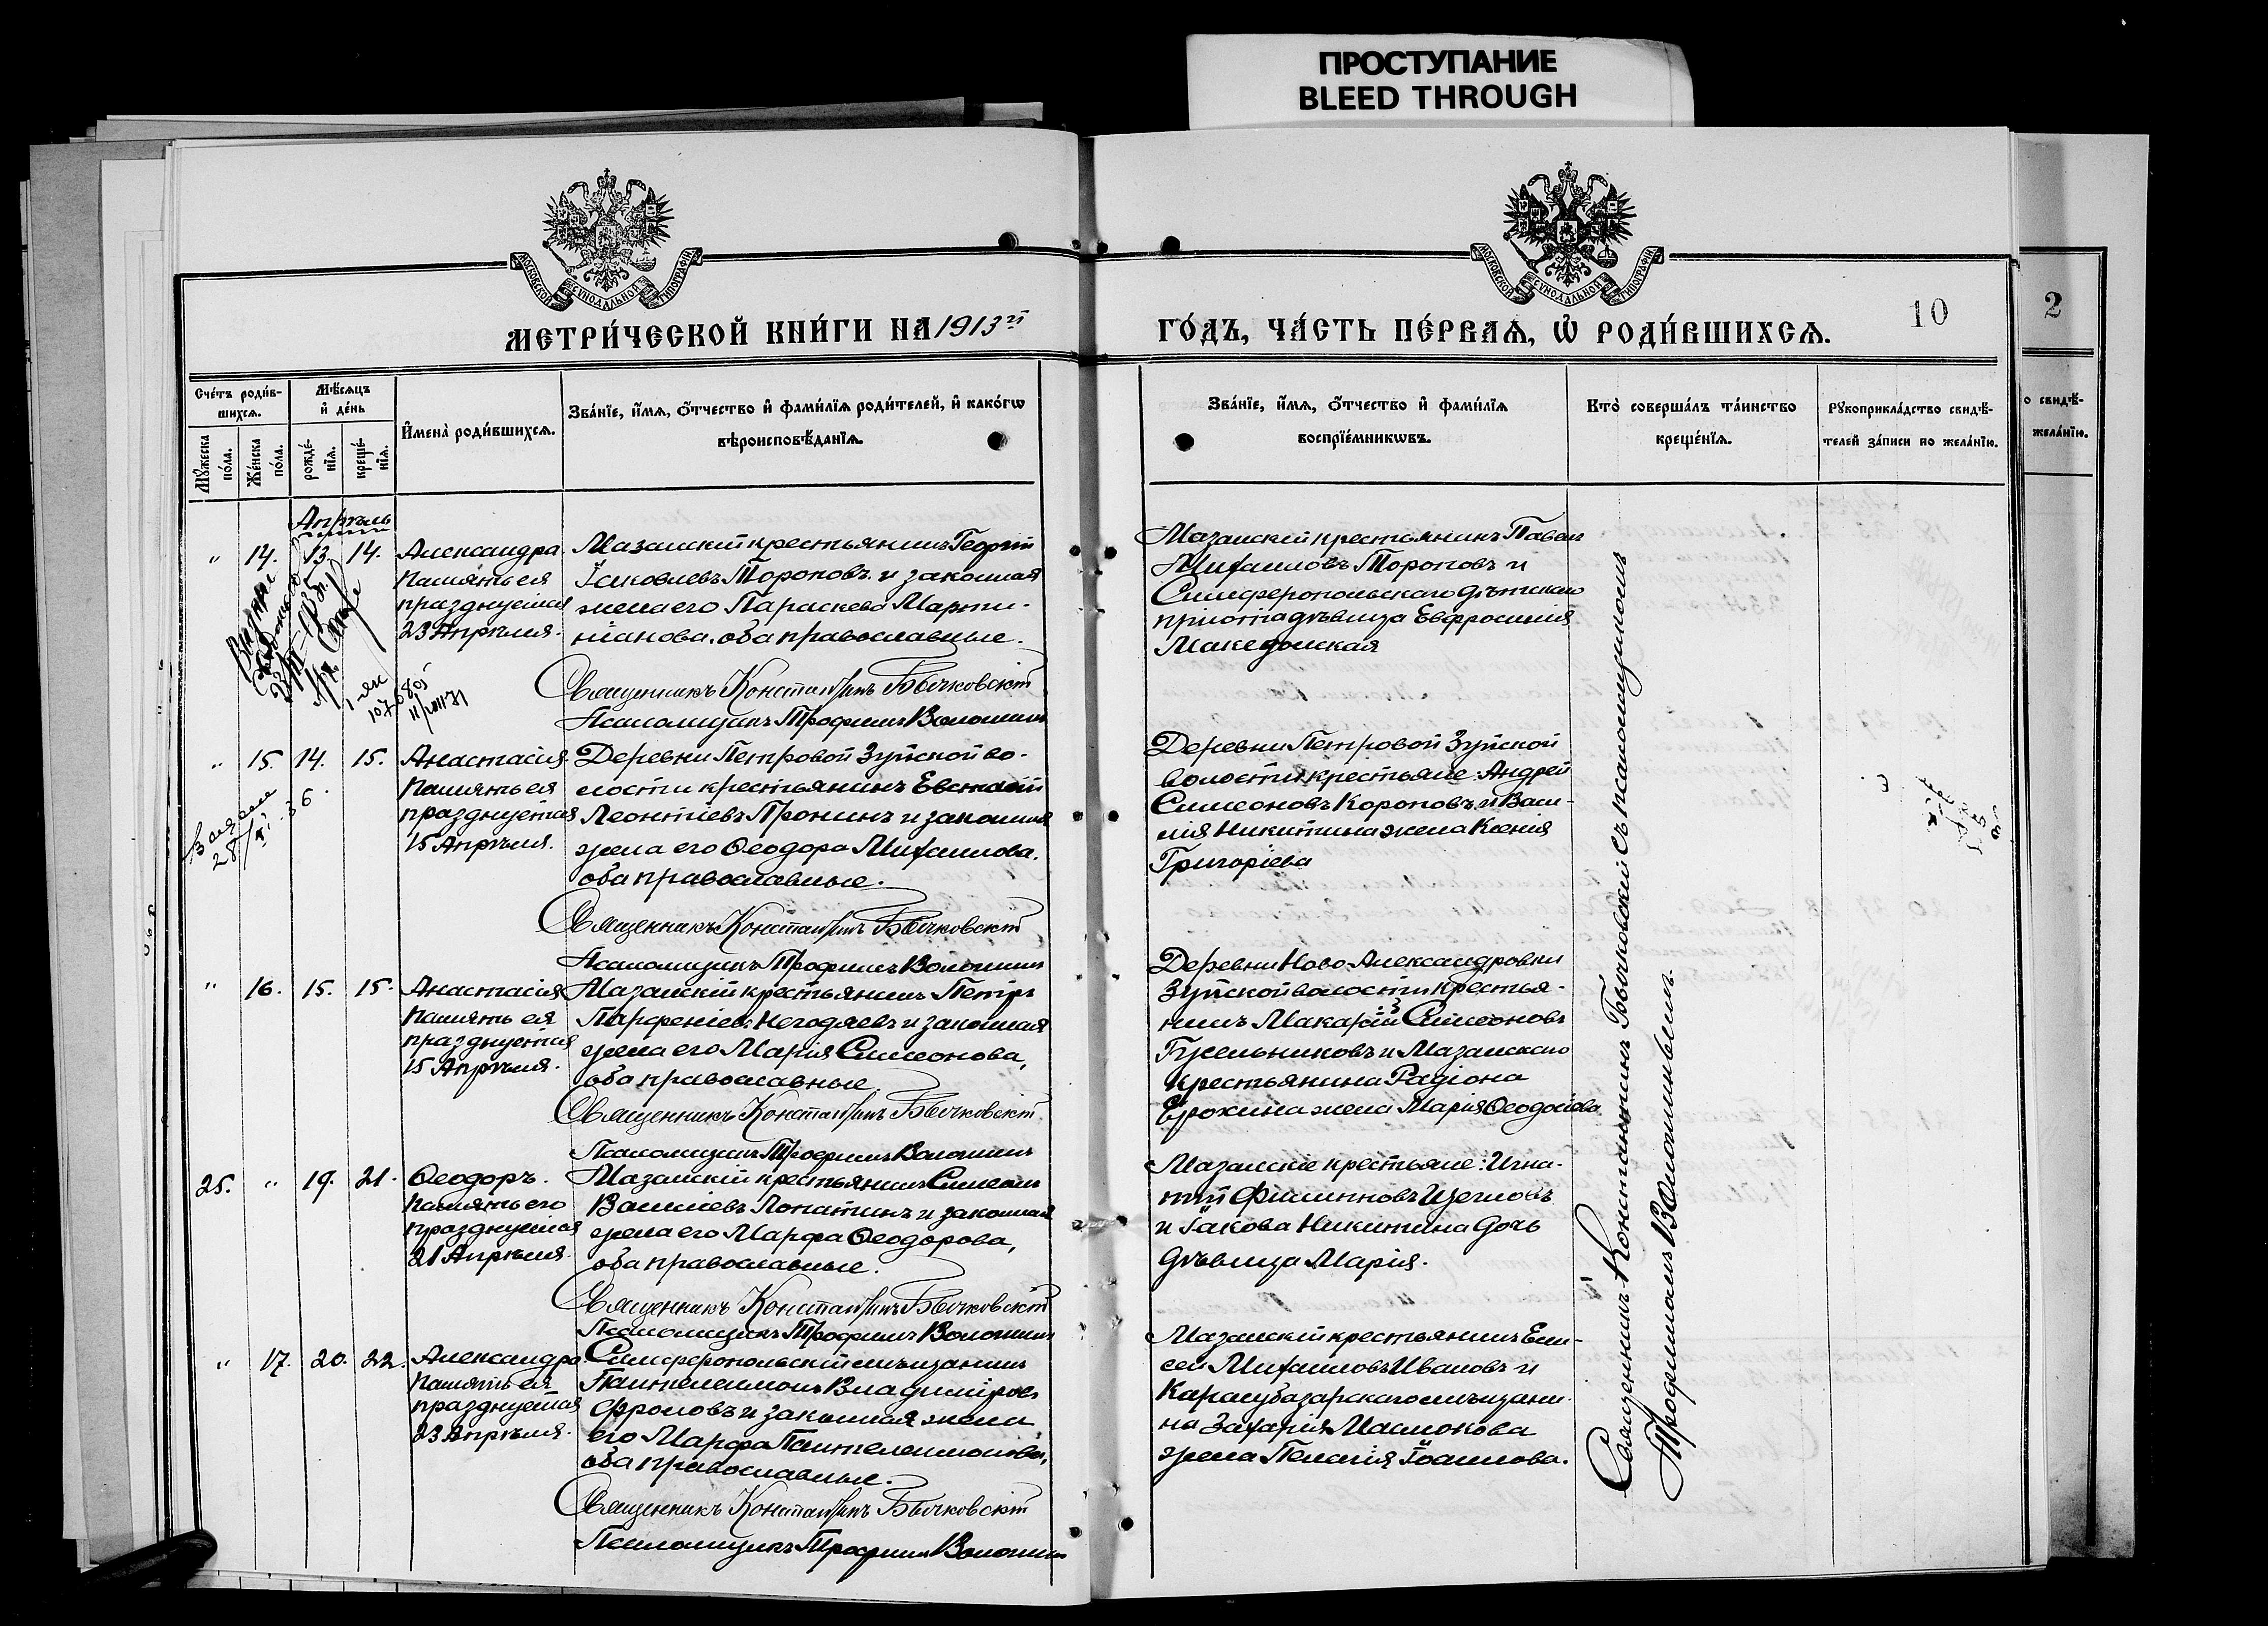 ПРОСТУПАНИЕ
BLEED THROUGH
МОСКОВСКОЙ СѴНОДАЛЬНОЙ ТИПОГРАФІИ
МОСКОВСКОЙ СѴНОДАЛЬНОЙ ТИПОГРАФІИ
МЕТРИ́ЧЕСКОЙ КНИ́ГИ НА 1913й
ГО́ДЪ, ЧА́СТЬ ПЕ́РВАѦ, Ѡ҆ РОДИ́ВШИХСѦ.
10
2
Сче́тъ роди́в-
шихсѧ.
Мꙋ́жеска по́ла.
Же́нска по́ла.
Мѣ́сѧцъ
и҆ де́нь
рожде́-
нїѧ.
креще́-
нїѧ.
И҆мена̀ роди́вшихсѧ.
Зва́нїе, и҆́мѧ, ѻ҆́тчество и҆ фами́лїѧ роди́телей, и҆ како́гѡ
вѣроисповѣ́данїѧ.
Зва́нїе, и҆́мѧ, ѻ҆́тчество и҆ фами́лїѧ
воспрїе́мникѡвъ.
Кто̀ соверша́лъ та́инство
креще́нїѧ.
Рꙋкоприкла́дство свидѣ́-
телей за́писи по жела́нїю.
о свидѣ́-
жела́нїю.
Апрѣль
" 14. 13. 14. Александра.
Память ея
празднуется
23 Апрѣля.
Мазанскій крестьянинъ Георгій
Іаковлевъ Тороповъ и законная
жена его Параскева Марти-
ніанова, оба православные.
Священникъ Константинъ Бычковскій
Псаломщикъ Трофимъ Волошинъ
Мазанскій крестьянинъ Павелъ
Михаиловъ Тороповъ и
Симферопольскаго дѣтскаго
пріюта дѣвица Евфросинія
Македонская
107680
" 15. 14. 15. Анастасія.
Память ея
празднуется
15 Апрѣля.
Деревни Петровой Зуйской во-
лости крестьянинъ Евстафій
Леонтіевъ Пронинъ и законная
жена его Ѳеодора Михаилова.
оба православные.
Священникъ Константинъ Бычковскій
Псаломщикъ Трофимъ Волошинъ
Деревни Петровой Зуйской
волости крестьяне: Андрей
Симеоновъ Короповъ и Васи-
лія Никитина жена Ксенія
Григоріева
" 16. 15. 15. Анастасія
Память ея
празднуется
15 Апрѣля.
Мазанскій крестьянинъ Петръ
Парфеніевъ Негодяевъ и законная
жена его Марія Симеонова,
оба православные.
Священникъ Константинъ Бычковскій
Псаломщикъ Трофимъ Волошинъ
Деревни Ново Александровки
Зуйской волости крестья-
нинъ Макарій Симеоновъ
Гусельниковъ и Мазанскаго
крестьянина Радіона
Ерохина жена Марія Ѳеодосіева
25. " 19. 21. Ѳеодоръ.
Память его
празднуется
21 Апрѣля.
Мазанскій крестьянинъ Симеонъ
Василіевъ Лопатинъ и законная
жена его Марфа Ѳеодорова,
оба православные.
Священникъ Константинъ Бычковскій
Псаломщикъ Трофимъ Волошинъ
Мазанскіе крестьяне: Игна-
тій Филипповъ
и Іакова Никитина дочь
дѣвица Марія.
" 17. 20. 22. Александра
Память ея
празднуется
23 Апрѣля.
Симферопольскій мѣщанинъ
Пантелеимонъ Владиміровъ
Фроловъ и законная жена
его Марфа Пантелеимонова,
оба православные.
Священникъ Константинъ Бычковскій
Псаломщикъ Трофимъ Волошинъ
Мазанскій крестьянинъ Ели-
сей Михаиловъ Ивановъ и
Карасубазарскаго мѣщани-
на Захарія
жена Пелагія Іоаннова.
Священникъ Константинъ Бычковскій съ псаломщикомъ
Трофимомъ Волошинымъ.